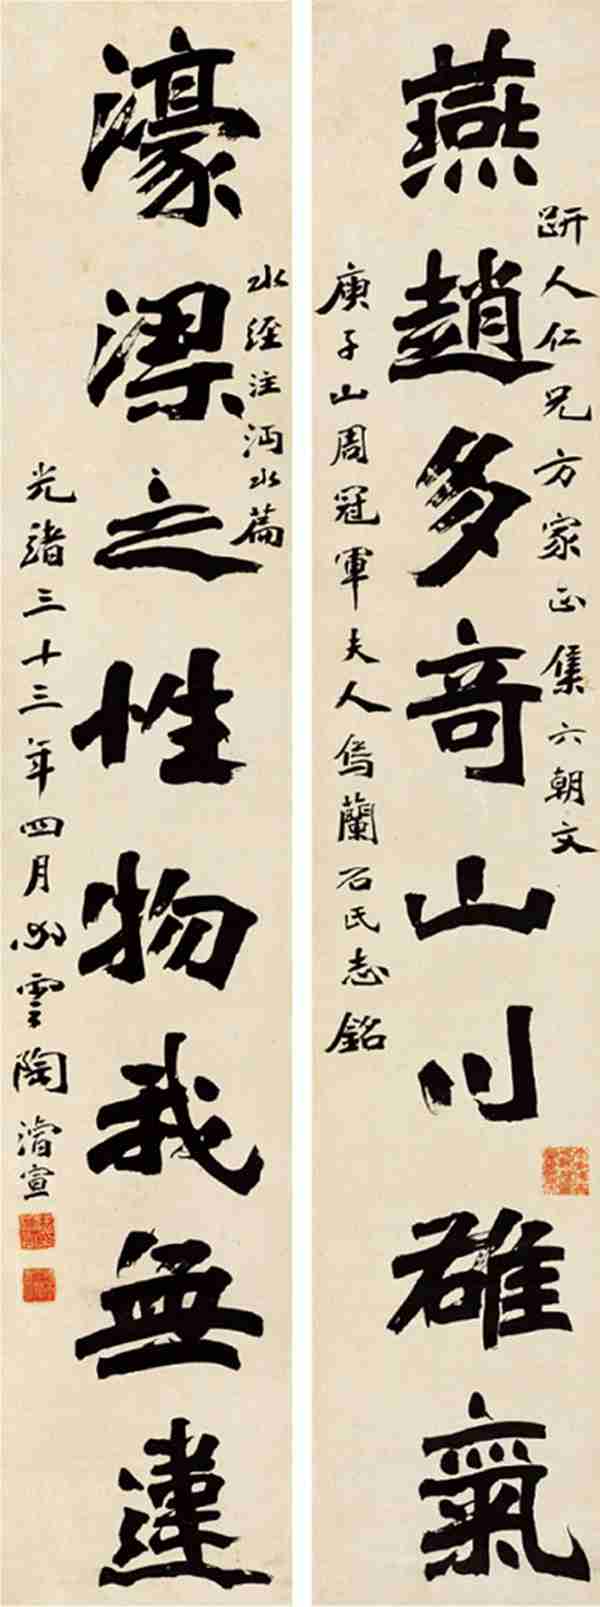 趼人仁兄方家正集六朝文
燕趙多奇山川雄氣
庾子山周冠軍夫人烏蘭石氏志銘
水經注沔水篇
濠梁之性物我無違
光緒三十三年四月心雲陶濬宣